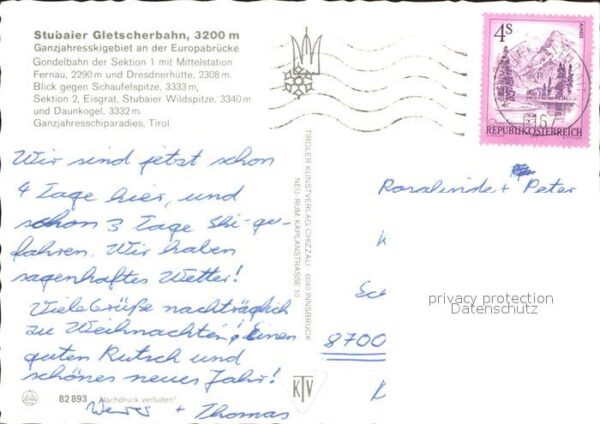 Stubaier Gletscherbahn, 3200 m
Ganzjahresskigebiet an der Europabrücke
Gondelbahn der Sektion 1 mit Mittelstation
Fernau, 2290 m und Dresdnerhütte, 2308 m.
Blick gegen Schaufelspitze, 3333 m,
Sektion 2, Eisgrat, Stubaier Wildspitze, 3340 m
und Daunkogel, 3332 m.
Ganzjahresschiparadies, Tirol
Wir sind jetzt schon
4 Tage hier, und
schon 3 Tage Ski-ge-
fahren. Wir haben
sagenhaftes Wetter!
Viele Grüße nachträglich
zu Weihnachten, Einen
guten Rutsch und
schönes neues Jahr!
+ Thomas
82 893 Nachdruck verboten
TIROLER KUNSTVERLAG CHIZZALI · 6040 INNSBRUCK
NEU-RUM, KAPLANSTRASSE 10
KTV
4S
REPUBLIK ÖSTERREICH
616
Roselinde + Peter
K
Sc
8700
privacy protection
Datenschutz